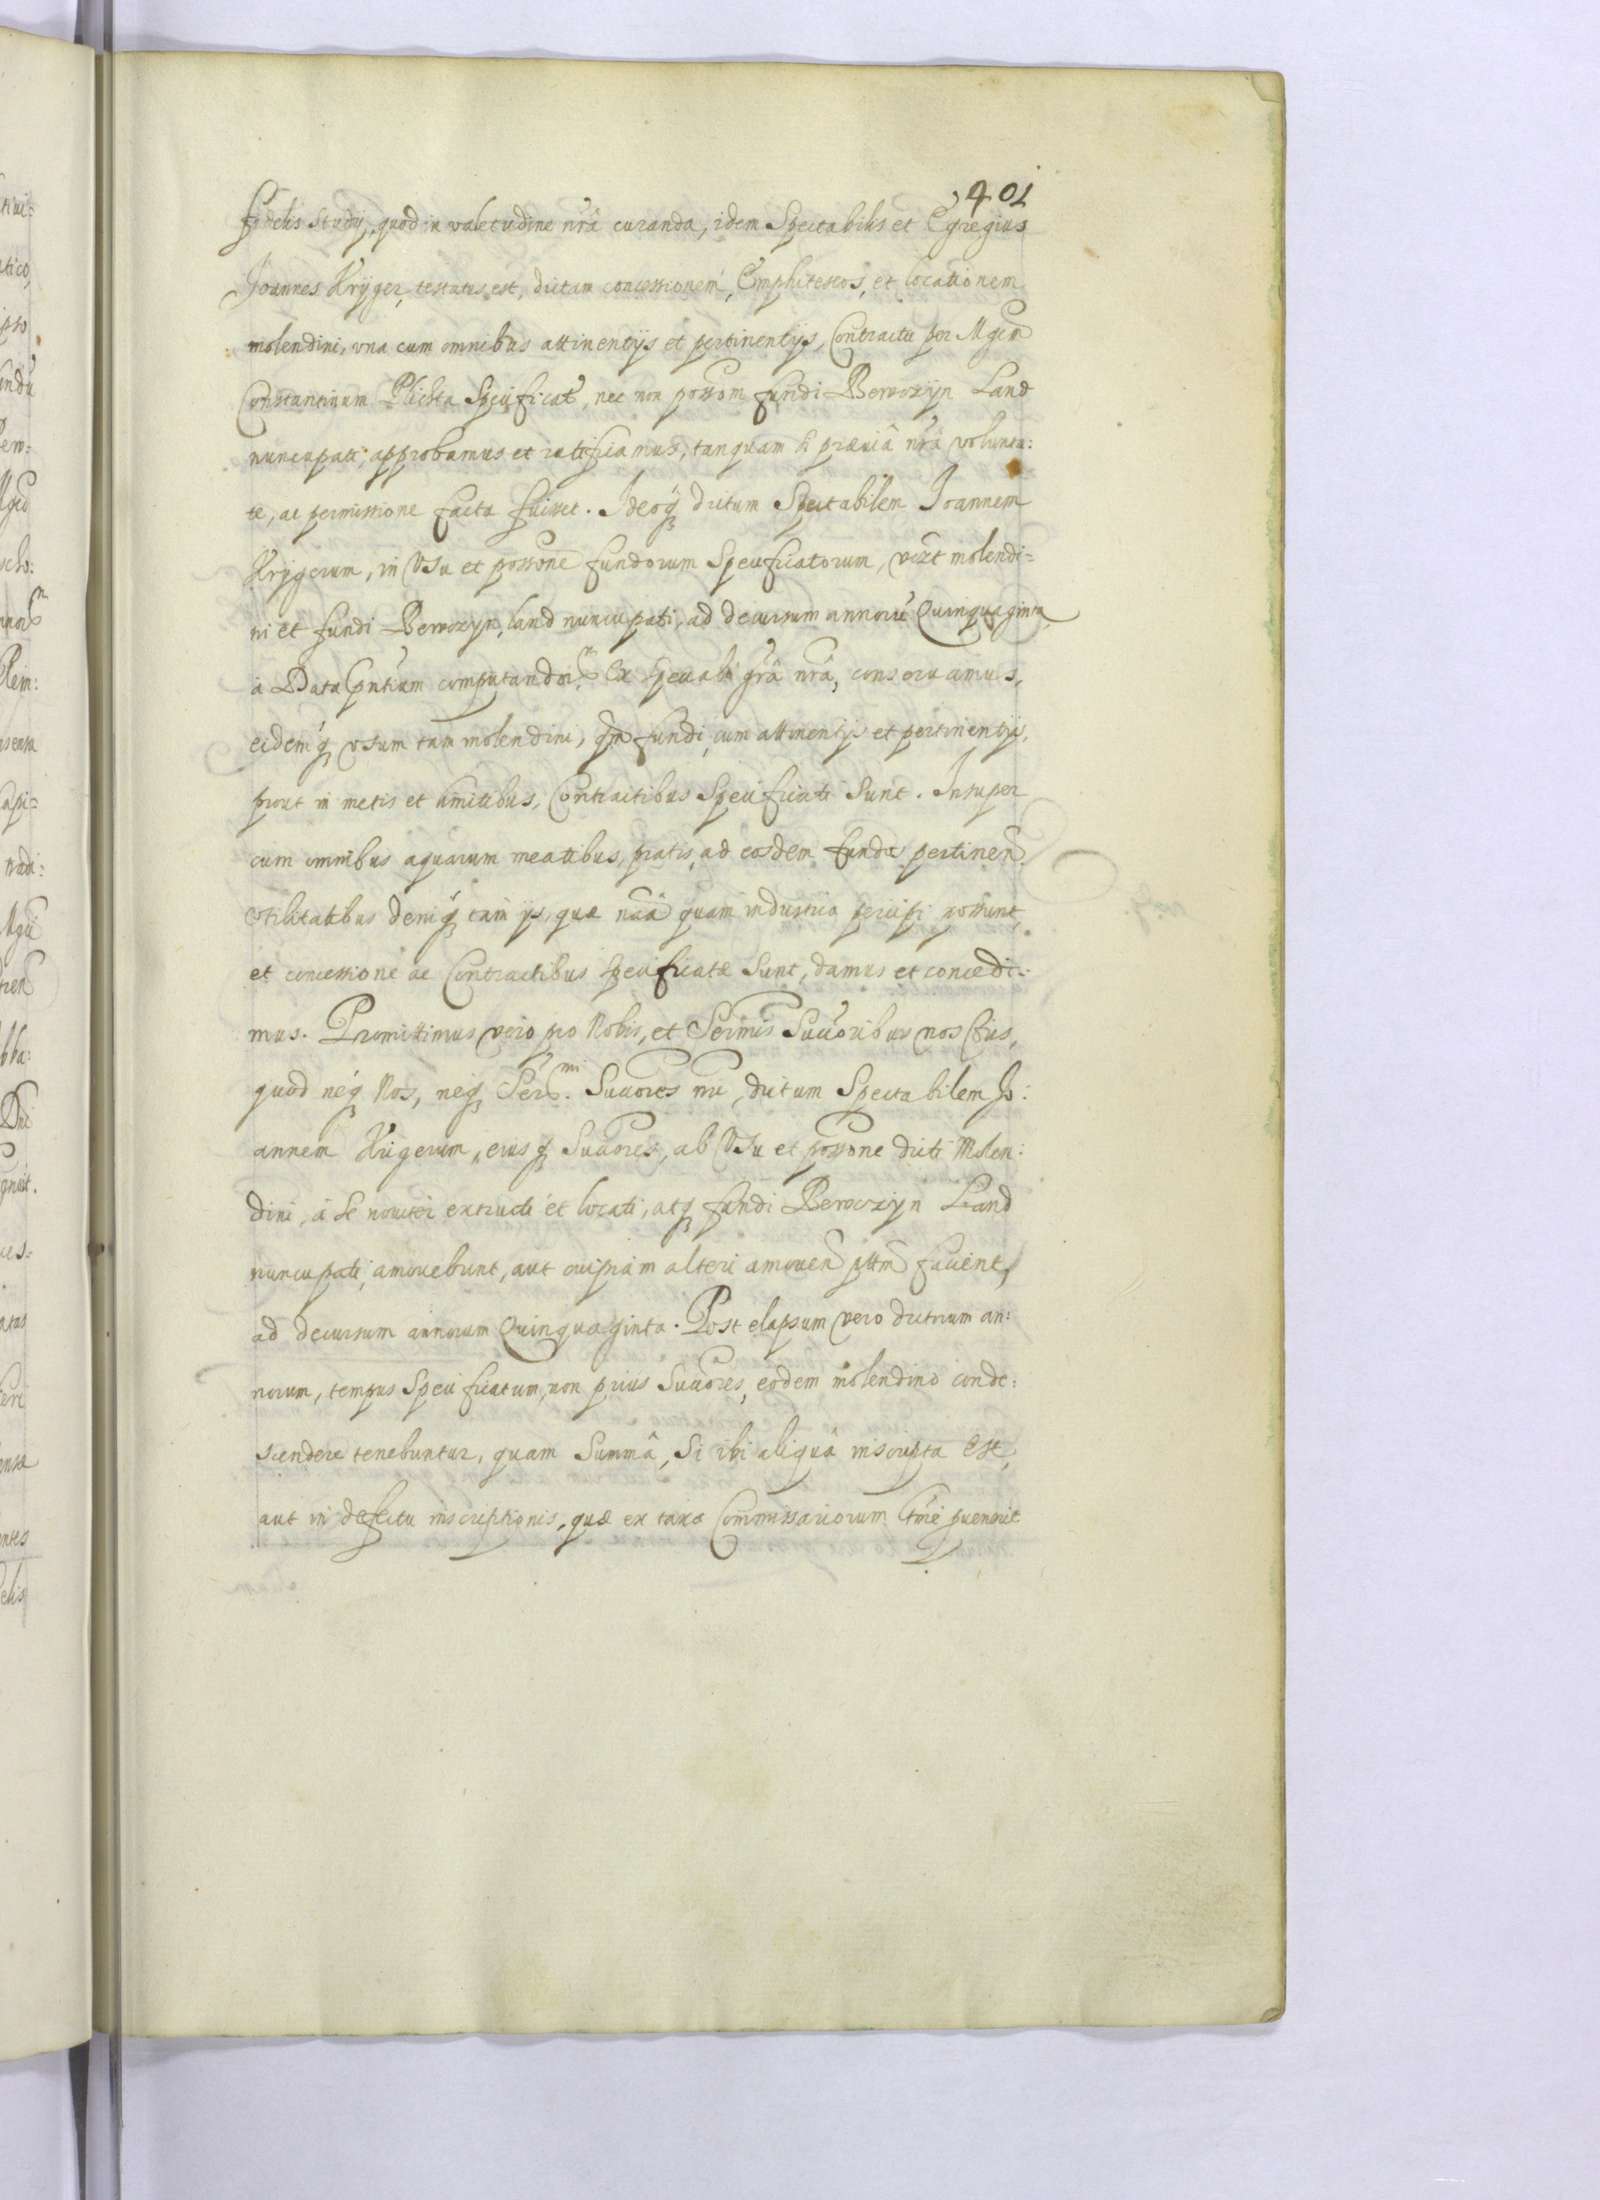 401
fidelis studij, quod in valetudine nrâ curanda, idem Spectabilis et Egregius
Joannes Krÿger, testatus est, dictam concessionem, Emphiteseos, et locationem
molendini, vna cum omnibus attinentijs et pertinentijs, Contractu per Mgcm
Constantinum Plichta Specificat, nec non possom fundi Berwozÿn Land
nuncupati, approbamus et ratificamus, tanquam si præuiâ nrâ volunta:
te, ac permissione facta fuisset. Ideoq dictum Spectabilem Joannem
Krÿgerum, in Vsu et possone fundorum Specificatorum, vizt molendi=
ni et fundi Berwozyn land nuncupati, ad decursum annorū Quinquaginta
à Data pntium computandor. Ex speciali grâ nrâ, conseruamus,
eidemq vsum tam molendini, qm fundi, cum attinentijs et pertinentijs,
prout in metis et limitibus, Contractibus Specificati Sunt. Insuper
cum omnibus aquarum meatibus, pratis, ad eosdem fundos pertinen
vtilitatibus deniq tam ijs, quæ nââ quam industria percipi possunt,
et concessione ac Contractibus specificatæ Sunt, damus et concedi:
mus. Promittimus vero pro Nobis, et Sermis Succoribus nos Eius,
quod neq Nos, neq Sermi. Succores nri, dictum Spectabilem Jo:
annem Krigerum, eiusq Succores, ab Vsu et possone dicti Molen:
dini, à se nouiter extructi et locati, atq fundi Berwozyn Land
nuncupati, amouebunt, aut cuipiam alteri amouen pttm facient,
ad decursum annorum Quinquaginta. Post elapsum vero dictrum an:
norum, tempus Specificatum, non prius Succores, eodem molendino conde:
scendere tenebuntur, quam Summâ, Si ibi aliquâ inscripta Est,
aut in defectu inscriptionis, quæ ex taxa Commissariorum prouenerit